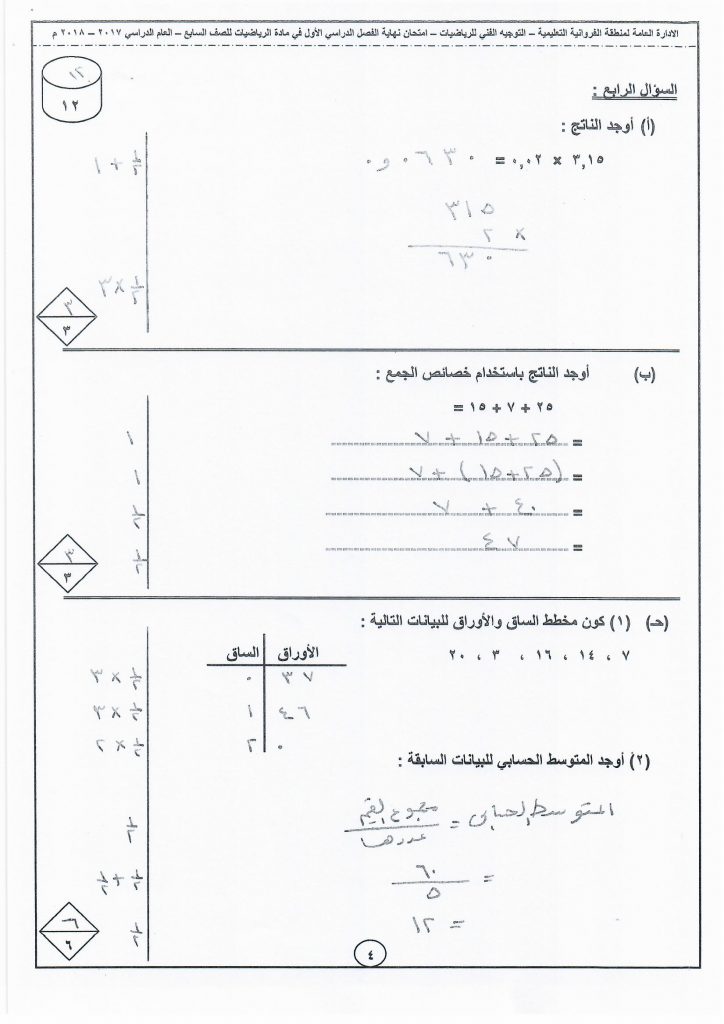 الادارة العامة لمنطقة الفروانية التعليمية – التوجيه الفني للرياضيات – امتحان نهاية الفصل الدراسي الأول في مادة الرياضيات للصف السابع – العام الدراسي ٢٠١٧ – ٢٠١٨ م
١٢
١٢
السؤال الرابع :
(أ) أوجد الناتج :
٣,١٥ × ٠,٠٢ = ٠٫٠٦٣٠
١/٢ + ١
٣١٥
× ٢
٦٣٠
١/٢ × ٣
٣
٣
(ب) أوجد الناتج باستخدام خصائص الجمع :
٢٥ + ٧ + ١٥ =
= ٢٥ + ١٥ + ٧
١
= (٢٥ + ١٥) + ٧
١
= ٤٠ + ٧
١/٢
= ٤٧
١/٢
٣
٣
(حـ) (١) كون مخطط الساق والأوراق للبيانات التالية :
٧ ، ١٤ ، ١٦ ، ٣ ، ٢٠
الساق الأوراق
٠ ٣ ٧
١/٢ × ٣
١ ٤ ٦
١/٢ × ٣
٢ ٠
١/٢ × ٢
(٢) أوجد المتوسط الحسابي للبيانات السابقة :
المتوسط الحسابي = مجموع القيم / عددها
١/٢
= ٦٠ / ٥
١/٢ + ١/٢
= ١٢
١/٢
٦
٦
٤